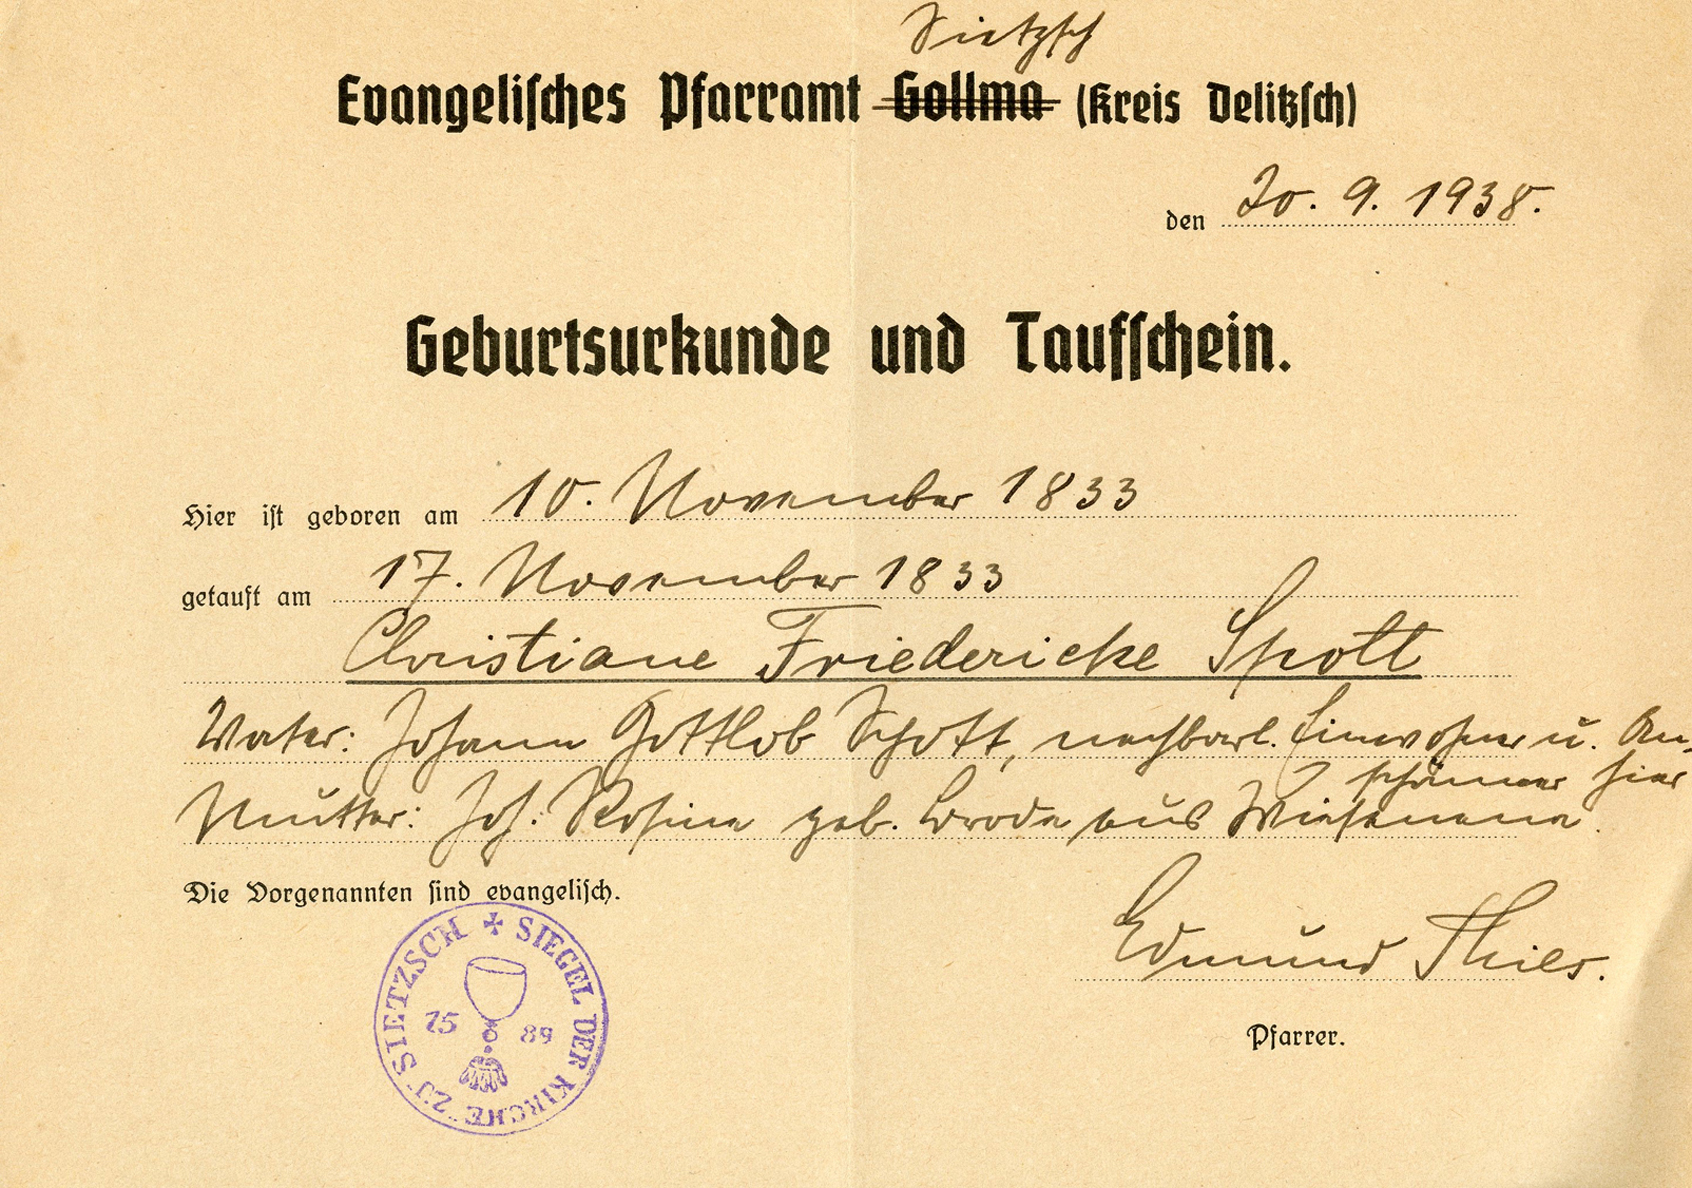 Sietzsch
Evangelisches Pfarramt Gollma (Kreis Delitzsch)
den 20. 9. 1938.
Geburtsurkunde und Taufschein.
Hier ist geboren am 10. November 1833
getauft am 17. November 1833
Christiane Friedericke Spott
Vater: Johann Gottlob Spott, nachbarl. Einwohner u. An-
spänner hier
Mutter: Joh. Rosine geb. Brode aus Wiesenena.
Die Vorgenannten sind evangelisch.
Edmund
Pfarrer.
SIEGEL DER KIRCHE ZU SIETZSCH
15 89